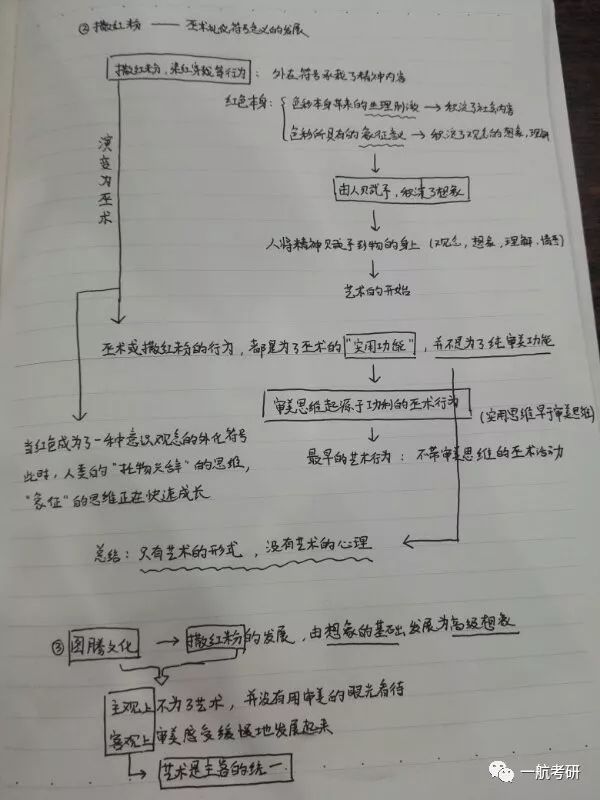 ② 撒红粉 —— 巫术礼仪符号意义的发展
撒红粉，染红穿戴等行为：外在符号承载了精神内容
红色本身：
色彩本身带来的生理刺激 → 积淀了社会内容
色彩所具有的象征意义 → 积淀了观念的想象，理解
演变为巫术
由人赋予，积淀了想象
人将精神赋予到物的身上（观念，想象，理解，情感）
艺术的开始
巫术或撒红粉的行为，都是为了巫术的"实用功能"，并不是为了纯审美功能
审美思维起源于功利的巫术行为（实用思维早于审美思维）
最早的艺术行为：不带审美思维的巫术活动
当红色成为了一种意识观念的外化符号
此时，人类的"托物言辞"的思维，
"象征"的思维正在快速成长
总结：只有艺术的形式，没有艺术的心理
③ 图腾文化 → 撒红粉的发展，由想象的基础发展为高级想象
主观上不为了艺术，并没有用审美的眼光看待
客观上审美感受缓慢地发展起来
艺术是主客的统一
一航考研